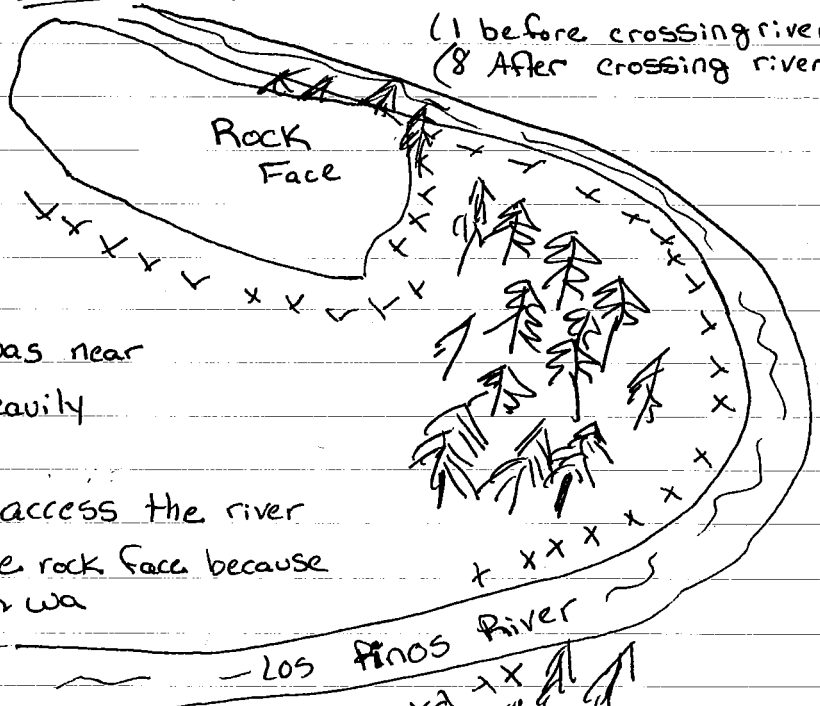 (1 before crossing river
(8 After crossing river
Rock
Face
near
access the river
rock face because
wa
Los Pinos River